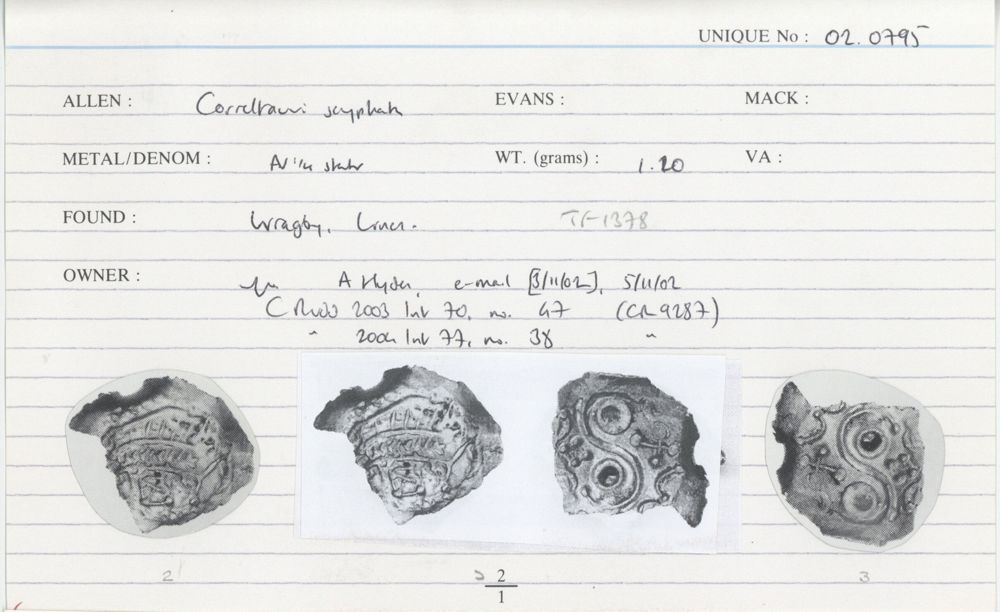 UNIQUE No : 02.0795
ALLEN : Corieltauvi scyphate EVANS : MACK :
METAL/DENOM : AV 1/4 stater WT. (grams) : 1.20 VA :
FOUND : Wragby, Lincs. TF1378
OWNER :
A e-mail [3/11/02], 5/11/02
C Rudd 2003 list 70, no. 47 (CR 9287)
" 2004 list 77, no. 38 "
2 2 3
2
1